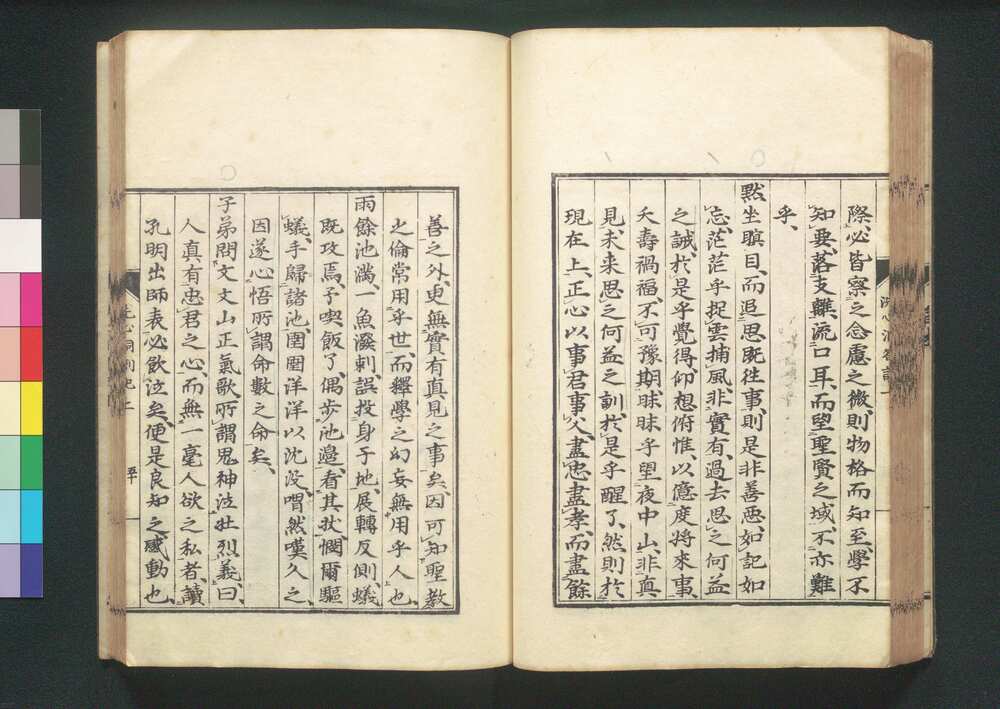 際必皆察之念慮之微則物格而知至學不
知要落支離流口耳而望聖賢之域不亦難
乎
默坐瞑目而追思既往事則是非善惡如記如
忘茫茫乎捉雲捕風非實有過去思之何益
之誠於是乎覺得仰想俯惟以億度將來事
夭壽禍福不可豫期昧昧乎望夜中山非真
見未来思之何益之訓於是乎醒了然則於
現在上正心以事君事父盡忠盡孝而盡餘
善之外更無實有真見之事矣因可知聖教
之倫常用乎世而釋學之幻妄無用乎人也
雨餘池滿一魚潑剌誤投身于地展轉反側蟻
既攻焉予喫飯了偶歩池邊看其狀憫爾驅
蟻手歸諸池圉圉洋洋以沈沒喟然嘆久之
因遂心悟所謂命數之命矣
子弟問文文山正氣歌所謂鬼神泣壯烈義曰
人真有忠君之心而無一毫人欲之私者讀
孔明出師表必飲泣矣便是良知之感動也